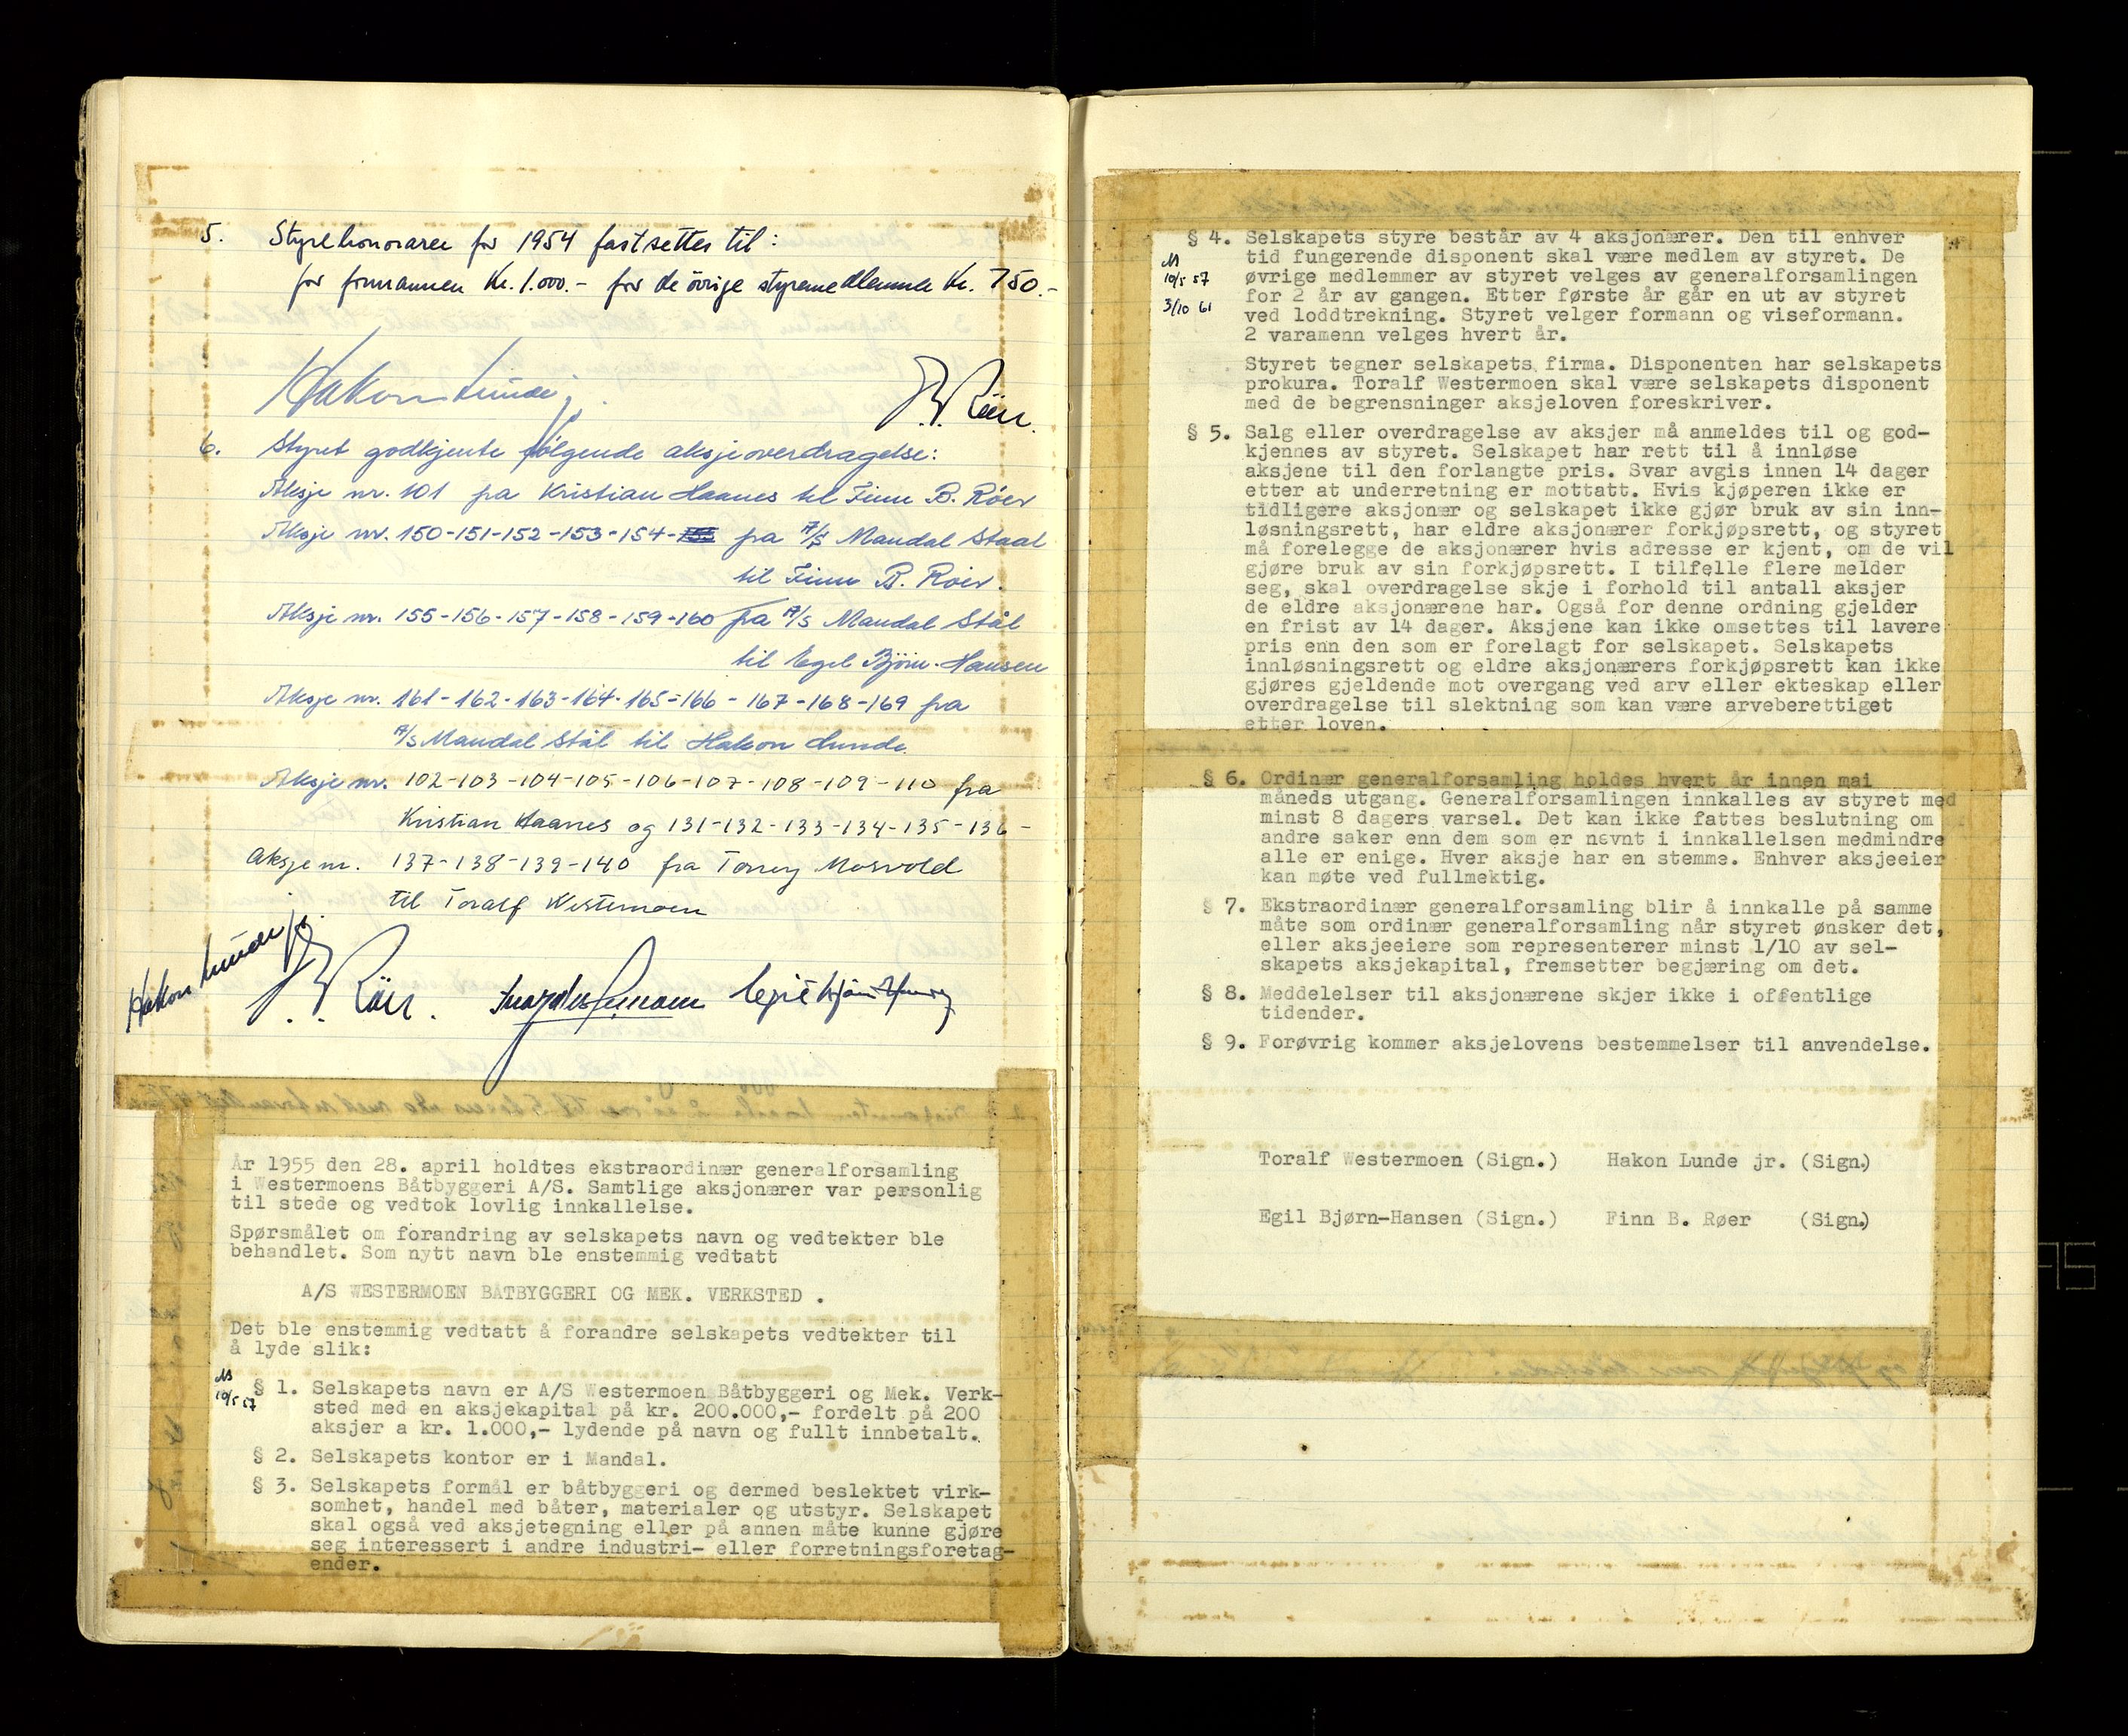 5. Styrehonorarer for 1954 fastsettes til:
for formannen Kr. 1.000.- for de øvrige styremedlemmer Kr. 750.-
Hakon Lunde jr.
F.B. Röer.
6. Styret godkjente følgende aksjeoverdragelse:
Aksje nr. 101 fra Kristian Haanes til Finn B. Röer
Aksje nr. 150-151-152-153-154- fra A/S Mandal Staal
til Finn B. Röer.
Aksje nr. 155-156-157-158-159-160 fra A/S Mandal Stål
til Egil Björn-Hansen
Aksje nr. 161-162-163-164-165-166-167-168-169 fra
A/S Mandal Stål til Hakon Lunde.
Aksje nr. 102-103-104-105-106-107-108-109-110 fra
Kristian Haanes og 131-132-133-134-135-136-
Aksje nr. 137-138-139-140 fra Torrey Mosvold
til Toralf Westermoen
Hakon Lunde jr.
F.B. Röer. Toralf Westermoen Egil Bjørn-Hansen
År 1955 den 28. april holdtes ekstraordinær generalforsamling
i Westermoens Båtbyggeri A/S. Samtlige aksjonærer var personlig
til stede og vedtok lovlig innkallelse.
Spørsmålet om forandring av selskapets navn og vedtekter ble
behandlet. Som nytt navn ble enstemmig vedtatt
A/S WESTERMOEN BÅTBYGGERI OG MEK. VERKSTED .
Det ble enstemmig vedtatt å forandre selskapets vedtekter til
å lyde slik:
10/5 57
§ 1. Selskapets navn er A/S Westermoen Båtbyggeri og Mek. Verk-
sted med en aksjekapital på kr. 200.000,- fordelt på 200
aksjer a kr. 1.000,- lydende på navn og fullt innbetalt.
§ 2. Selskapets kontor er i Mandal.
§ 3. Selskapets formål er båtbyggeri og dermed beslektet virk-
somhet, handel med båter, materialer og utstyr. Selskapet
skal også ved aksjetegning eller på annen måte kunne gjøre
seg interessert i andre industri- eller forretningsforetag-
ender.
§ 4. Selskapets styre består av 4 aksjonærer. Den til enhver
tid fungerende disponent skal være medlem av styret. De
10/5 57 øvrige medlemmer av styret velges av generalforsamlingen
3/10 61 for 2 år av gangen. Etter første år går en ut av styret
ved loddtrekning. Styret velger formann og viseformann.
2 varamenn velges hvert år.
Styret tegner selskapets firma. Disponenten har selskapets
prokura. Toralf Westermoen skal være selskapets disponent
med de begrensninger aksjeloven foreskriver.
§ 5. Salg eller overdragelse av aksjer må anmeldes til og god-
kjennes av styret. Selskapet har rett til å innløse
aksjene til den forlangte pris. Svar avgis innen 14 dager
etter at underretning er mottatt. Hvis kjøperen ikke er
tidligere aksjonær og selskapet ikke gjør bruk av sin inn-
løsningsrett, har eldre aksjonærer forkjøpsrett, og styret
må forelegge de aksjonærer hvis adresse er kjent, om de vil
gjøre bruk av sin forkjøpsrett. I tilfelle flere melder
seg, skal overdragelse skje i forhold til antall aksjer
de eldre aksjonærene har. Også for denne ordning gjelder
en frist av 14 dager. Aksjene kan ikke omsettes til lavere
pris enn den som er forelagt for selskapet. Selskapets
innløsningsrett og eldre aksjonærers forkjøpsrett kan ikke
gjøres gjeldende mot overgang ved arv eller ekteskap eller
overdragelse til slektning som kan være arveberettiget
etter loven.
§ 6. Ordinær generalforsamling holdes hvert år innen mai
måneds utgang. Generalforsamlingen innkalles av styret med
minst 8 dagers varsel. Det kan ikke fattes beslutning om
andre saker enn dem som er nevnt i innkallelsen medmindre
alle er enige. Hver aksje har en stemme. Enhver aksjeeier
kan møte ved fullmektig.
§ 7. Ekstraordinær generalforsamling blir å innkalle på samme
måte som ordinær generalforsamling når styret ønsker det,
eller aksjeeiere som representerer minst 1/10 av sel-
skapets aksjekapital, fremsetter begjæring om det.
§ 8. Meddelelser til aksjonærene skjer ikke i offentlige
tidender.
§ 9. Forøvrig kommer aksjelovens bestemmelser til anvendelse.
Toralf Westermoen (Sign.) Hakon Lunde jr. (Sign.)
Egil Bjørn-Hansen (Sign.) Finn B. Røer (Sign.)